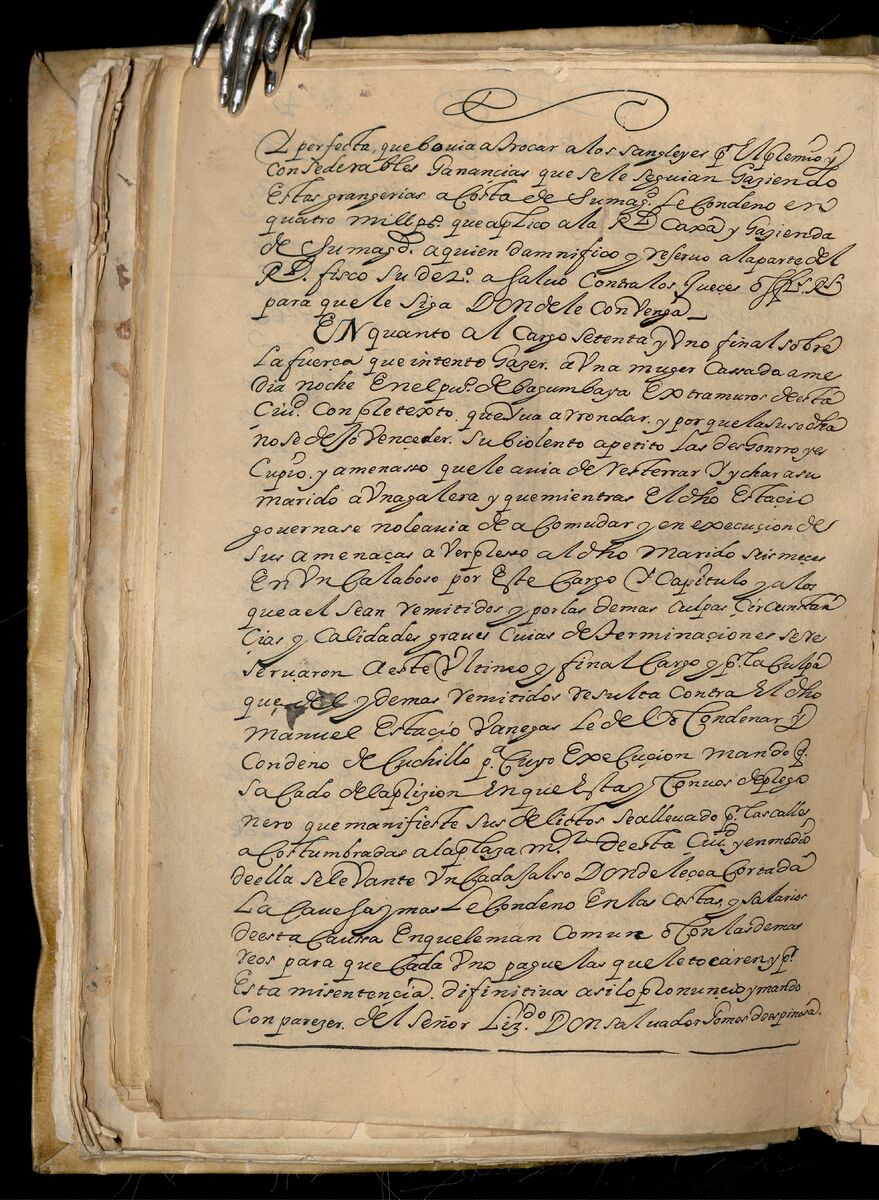 Y perfecta, que bolvia a trocar a los sangleyes pr. El plemio y
Consederables Ganancias que se le seguian Gaziendo
Estas grangerias a Costa de Su magd. Le Condeno en
quatro mill ps. que aplico a la Rl. Caxa y Gazienda
de Su magd. a quien damnifico y reservo a la parte del
Rl. fisco Su dezo. a Salvo Contra los Jueçes offles. Rs
para que le Siga Donde le Convenga
En quanto al Cargo Setenta y Uno final sobre
La fuerça que intento Gazer a Una muger Cassada a me
dia noche En el pu. de bagumbaya Extramuros de esta
Ciud. Con pletexto que Iva a rrondar y porque la suso dha
no se dejo Vençeder. Su biolento apetito Las desGonrro y es
Cupio. y amenasso que le avia de desterrar Y ychar a su
marido a Una galera y que mientras El dho Estaçio
governase no le avia de a Comudar y en execuçion de
Sus amenaças a Verpleso al dho Marido seis meçes
En Un Calaboso por Este Cargo Y Capitulo y a los
que a el Sean remitidos y por las demas Culpas Circunstan
Cias y Calidades graves Cuias determinaçiones se re
servaron a este Ultimo y final Cargo y pr. la Culpa
que de el y demas remitidos resulta Contra El dho
Manuel Estaçio Vanegas Le deVo Condenar y
Condeno de Cuchillo pa. Cuyo Execuçion mando q.
Sacado de la plizion En que Esta y Con vos de plego
nero que manifieste Sus delictos Sea llevado pr. las calles
a Costumbradas a la plaza mor. de esta Ciud. y en medio
de ella Se le Vante Un Cadahalso Donde le çea Cortada
La Caveha y mas Le Condeno En las Costas y Salarios
de esta Caussa En que le man Comun o Con las demas
reos para que Cada Uno pague las que le tocaren y pr.
Esta mi sentençia. difinitiva asi lo plonuncio y mando
Con pareçer. del Señor Lizdo. Don Salvador Gomes de espinosa.